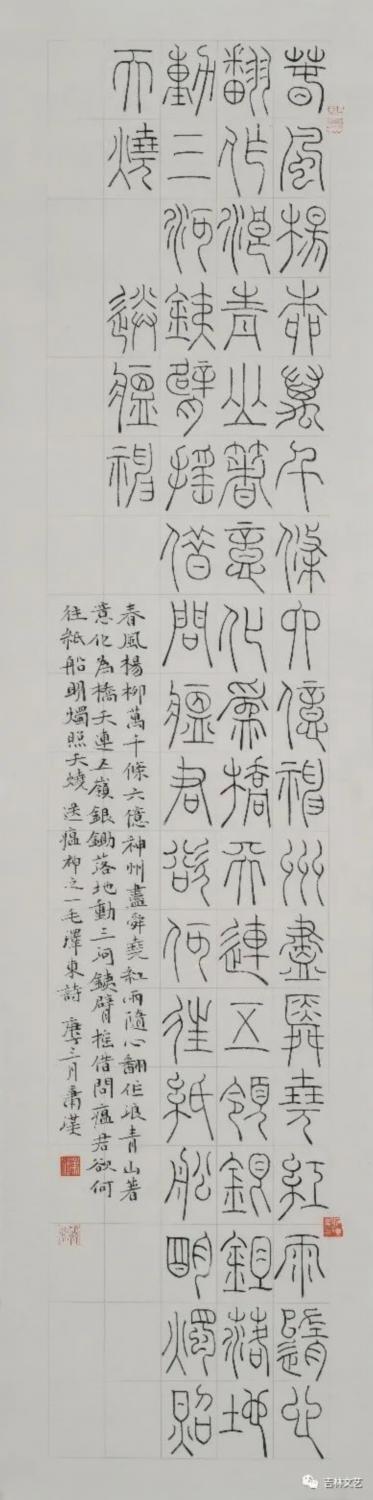 春風楊柳萬千條六億神州盡舜堯紅雨隨心
翻作浪青山著意化為橋天連五領銀鉏落地
動三河鐵臂搖借問瘟君欲何往紙船明燭照
天燒 送瘟神
春風楊柳萬千條六億神州盡舜堯紅雨隨心翻作浪青山著
意化為橋天連五嶺銀鋤落地動三河鐵臂搖借問瘟君欲何
往紙船明燭照天燒 送瘟神之一毛澤東詩 庚子三月
吉林文艺